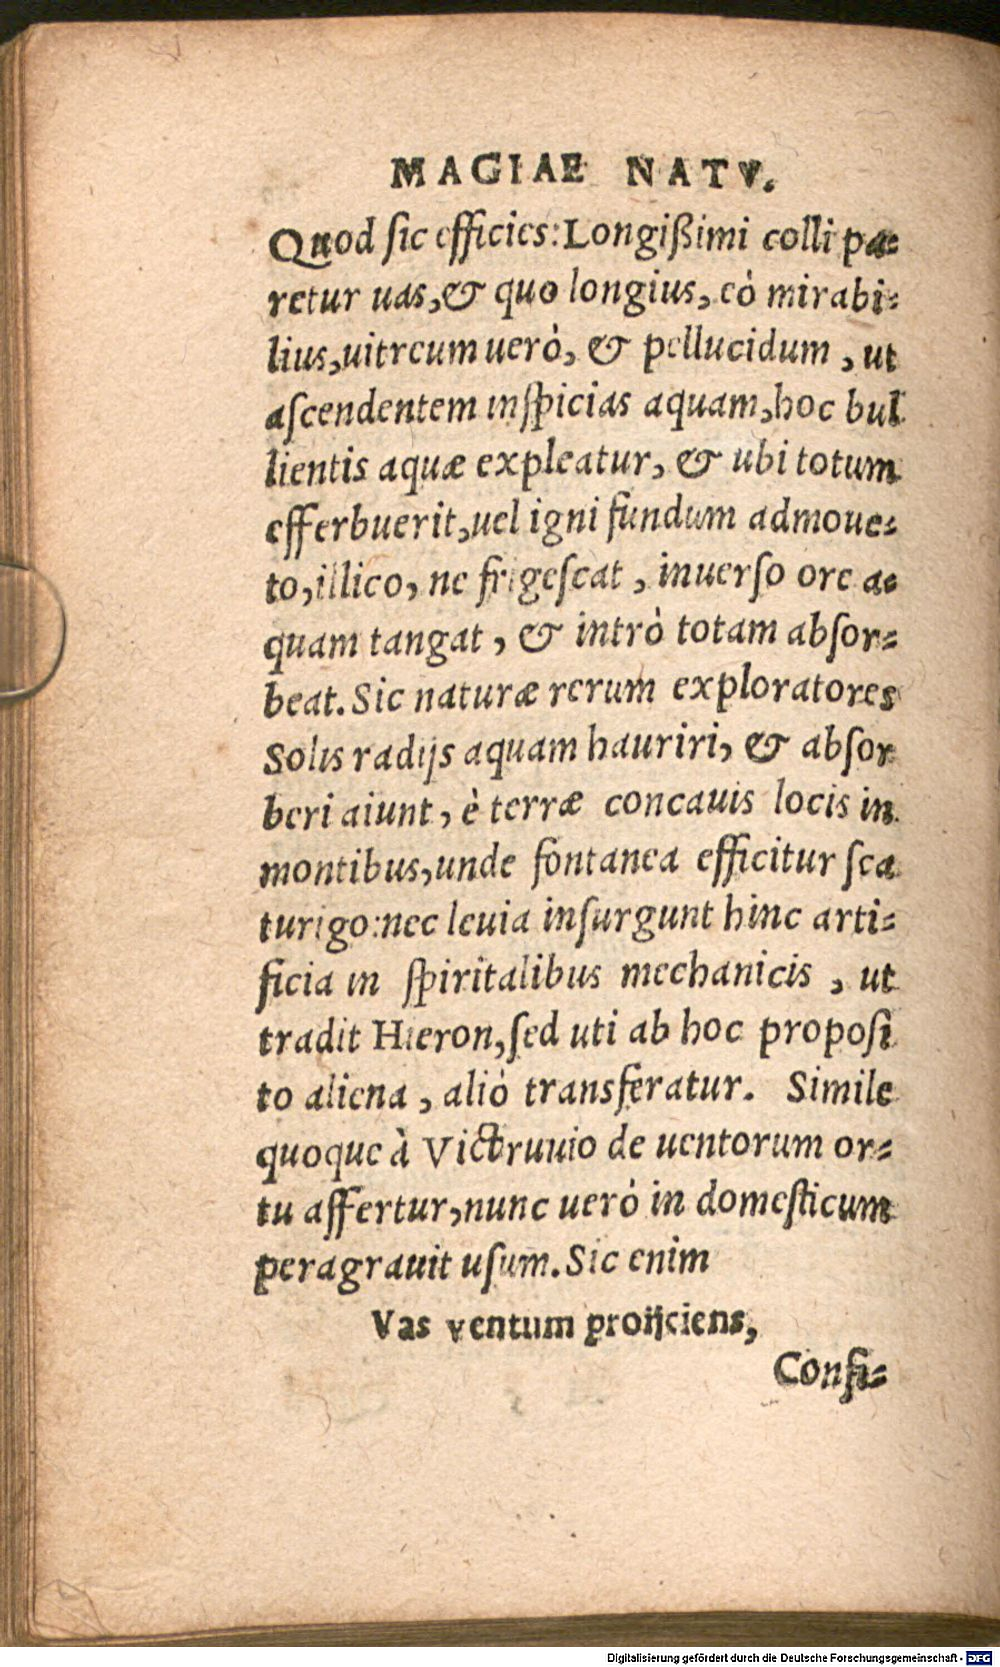 MAGIAE NATV.
Quod sic efficies: Longißimi colli pa-
retur uas, & quo longius, eò mirabi-
lius, uitreum uerò, & pellucidum, ut
aſcendentem inſpicias aquam, hoc bul
lientis aquæ expleatur, & ubi totum
efferbuerit, uel igni fundum admoue-
to, illico, ne frigeſcat, inuerſo ore a-
quam tangat, & intrò totam abſor-
beat. Sic naturæ rerum exploratores
Solis radijs aquam hauriri, & abſor
beri aiunt, è terræ concauis locis in
montibus, unde fontanea efficitur ſca
turigo: nec leuia inſurgunt hinc arti-
ficia in ſpiritalibus mechanicis, ut
tradit Hieron, ſed uti ab hoc propoſi
to aliena, aliò transferatur. Simile
quoque à Victruuio de uentorum or-
tu affertur, nunc uerò in domeſticum
peragrauit uſum. Sic enim
Vas ventum proijciens,
Confi-
Digitalisierung gefördert durch die Deutsche Forschungsgemeinschaft - DFG